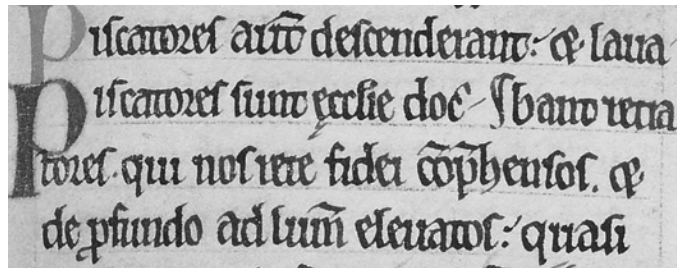 Piscatores aut̄ descenderant: & laua
Piscatores sunt ęcclie doc̄ ¶ bant retia
tores. qui nos rete fidei cōp̄hensos. &
de ꝑfundo ad lum̄ eleuatos: quasi